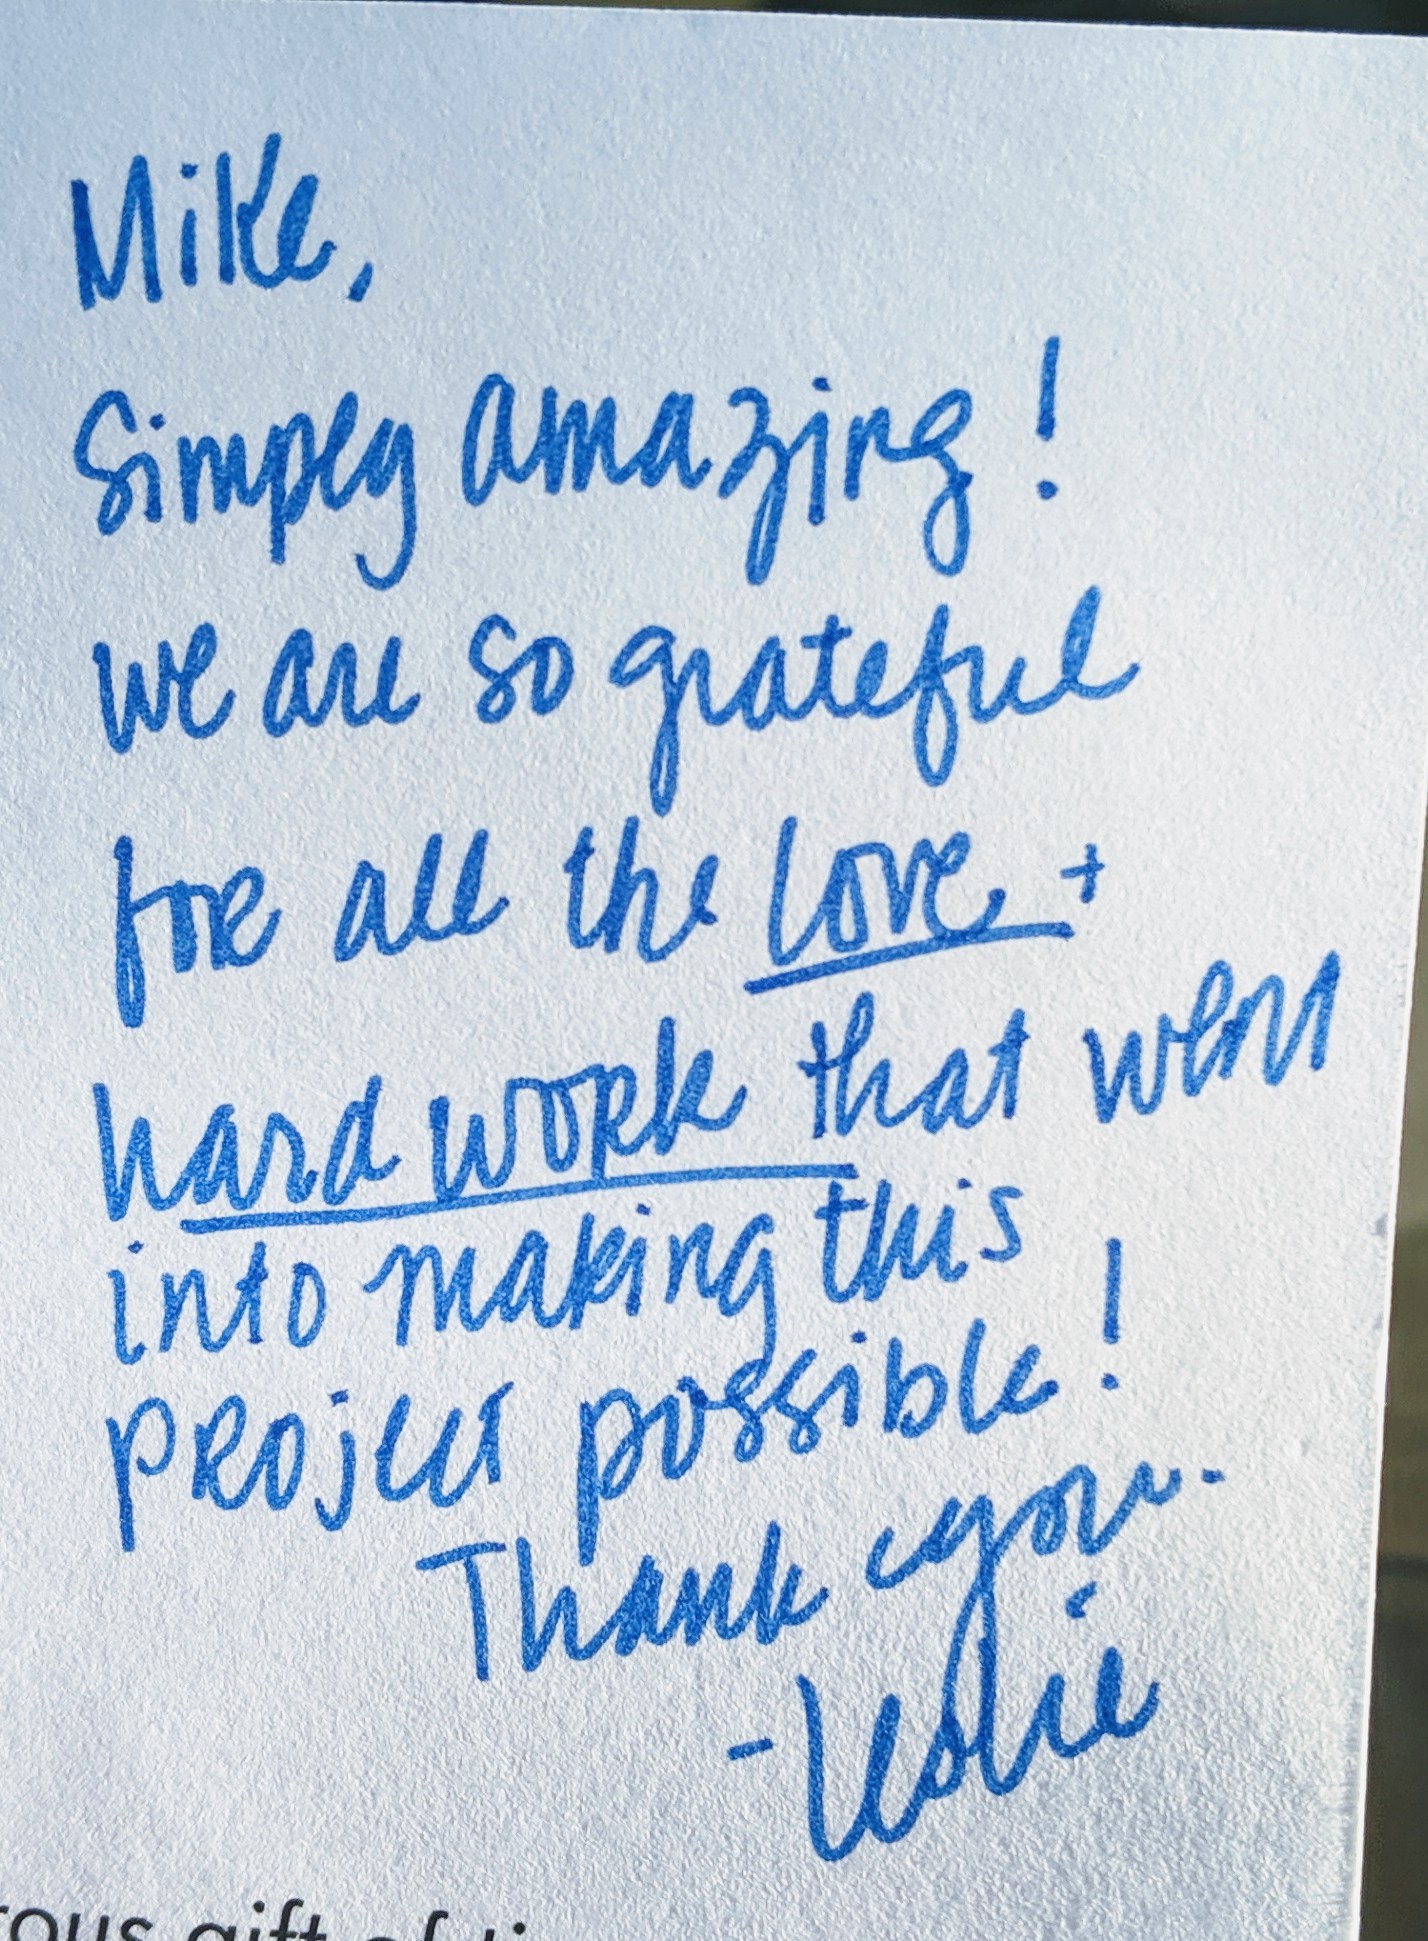 Mike,
Simply amazing!
we are so grateful
for all the love +
hard work that went
into making this
project possible!
Thank you.
-Leslie
rous gift of ti